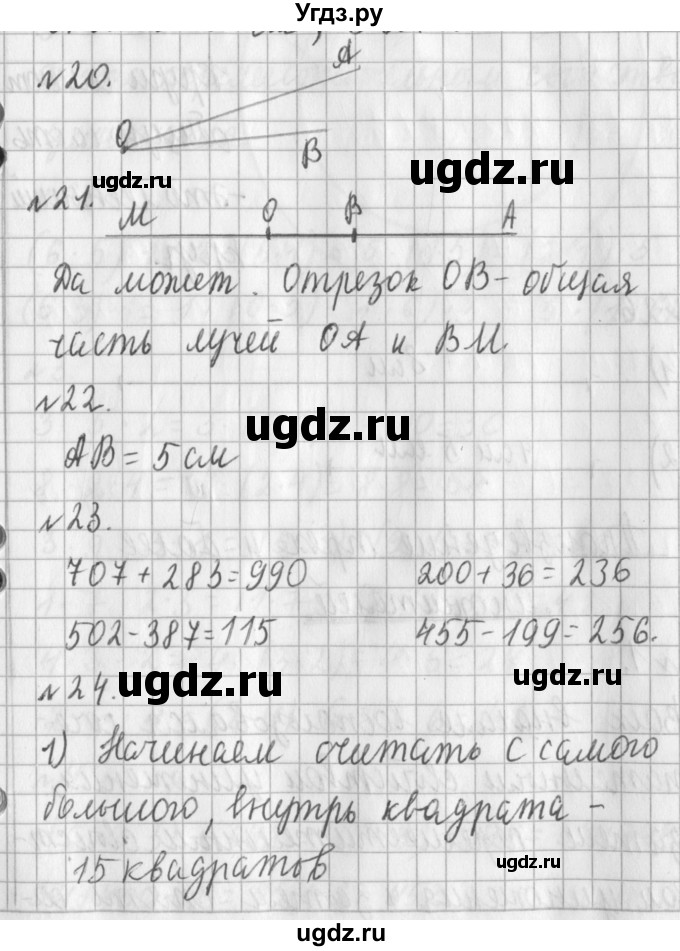 Угдз.ру
№20.
A
O
B
ugdz.ru
ugdz.ru
№21.
M O B A
Да может. Отрезок OB - общая
часть лучей OA и BM
№22.
ugdz.ru
AB = 5 см
№23.
707 + 283 = 990 200 + 36 = 236
502 - 387 = 115 455 - 199 = 256.
№24.
ugdz.ru
ugdz.ru
1) Начинаем считать с самого
большого, внутрь квадрата -
15 квадратов
ugdz.ru
ugdz.ru